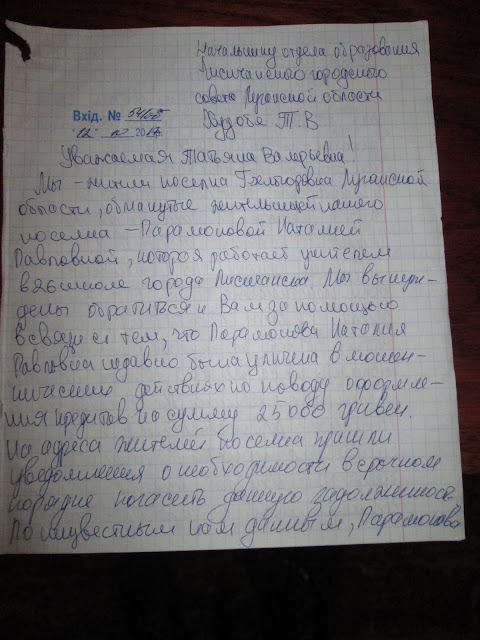 Начальнику отдела образования
Лисичанского городского
совета Луганской области
Худобе Т.В
Вхід. №
201
Уважаемая Татьяна Валерьевна!
Мы - жители поселка Белгоровка Луганской
области, обманутые жительницей нашего
поселка - Парамоновой Наталией
Павловной, которая работает учителем
в школе города Лисичанска. Мы вынуж-
дены обратиться к Вам за помощью
в связи с тем, что Парамонова Наталия
Павловна недавно была уличена в мошен-
нических действиях по поводу оформле-
ния кредитов на сумму 25000 гривен.
На адреса жителей поселка пришли
уведомления о необходимости в срочном
порядке погасить данную задолженность.
По известным нам данным, Парамонова